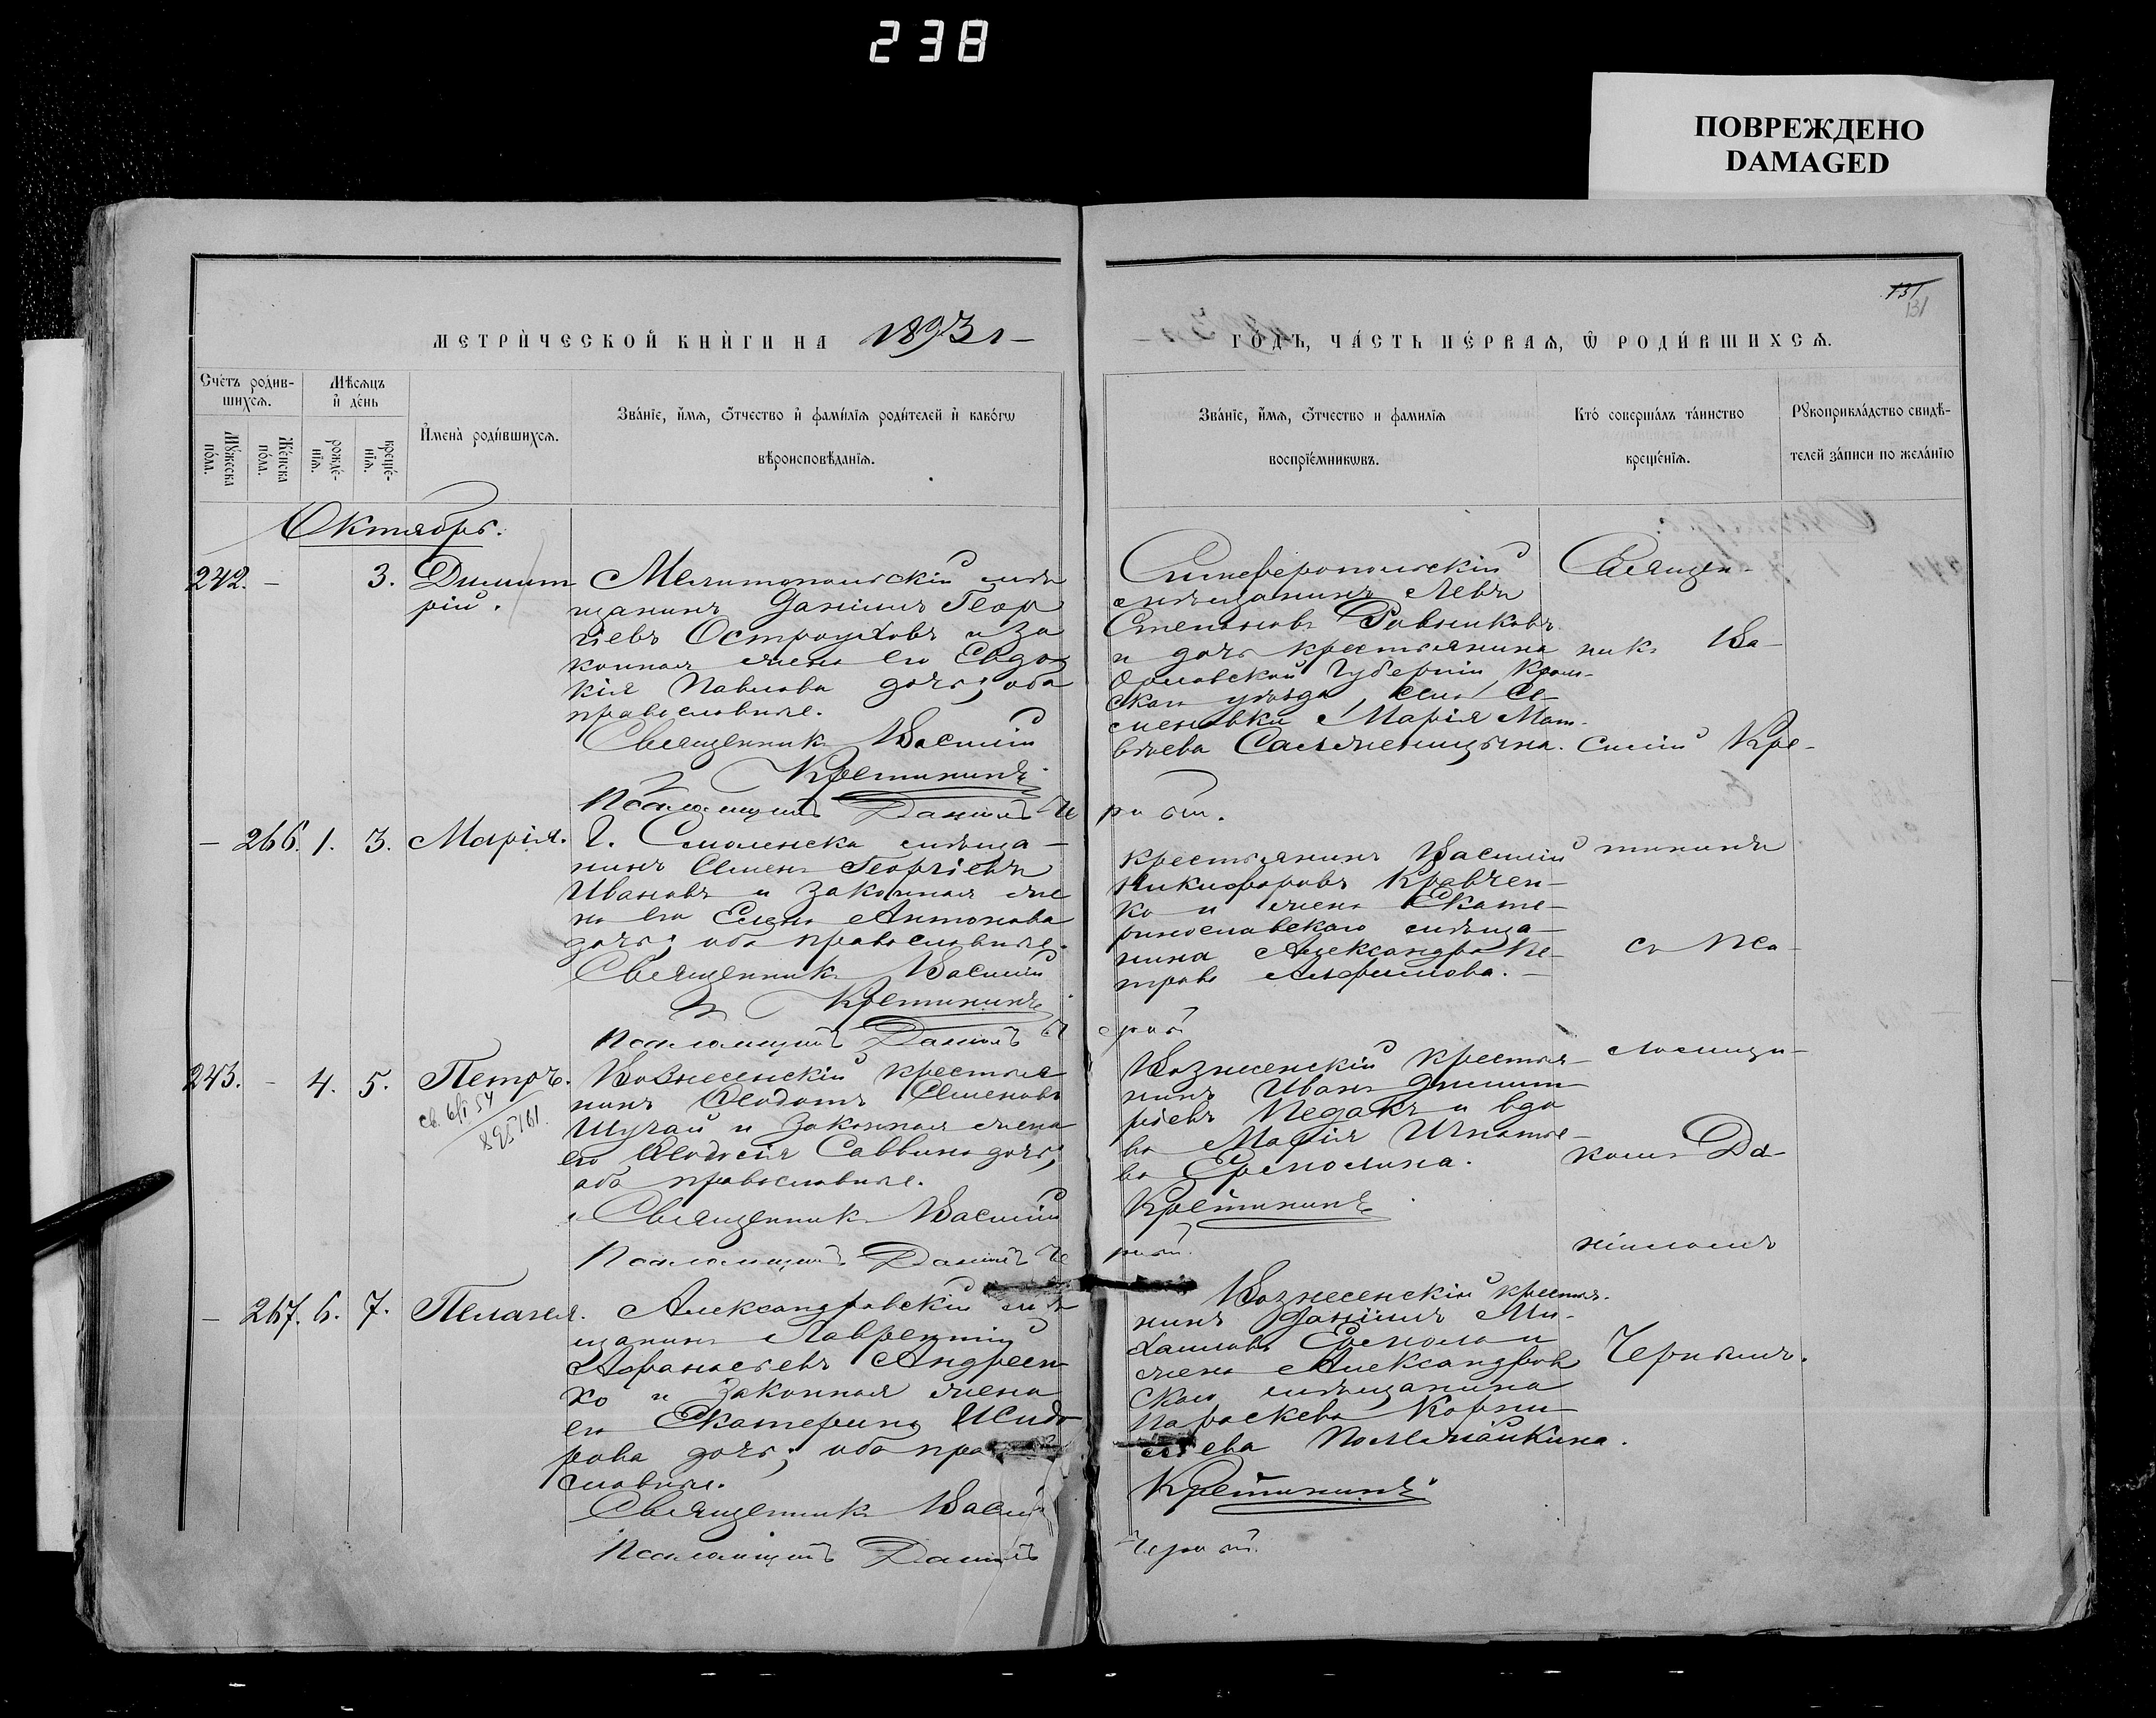 238
ПОВРЕЖДЕНО
DAMAGED
131
131
МЕТРИ́ЧЕСКОЙ КНИ́ГИ НА 1893 г
ГО́ДЪ, ЧА́СТЬ ПЕ́РВАѦ, Ѿ РОДИ́ВШИХСѦ.
Сче́тъ роди́в-
шихсѧ.
Мꙋ́жеска по́ла.
Же́нска по́ла.
Мѣ́сѧцъ
и҆ де́нь
рожде́-
нїѧ.
креще́-
нїѧ.
И҆мена̀ роди́вшихсѧ.
Зва́нїе, и҆́мѧ, ѻ҆́тчество и҆ фами́лїѧ роди́телей и҆ како́гѡ
вѣроисповѣ́данїѧ.
Зва́нїе, и҆́мѧ, ѻ҆́тчество и фамилїѧ
воспрїе́мникѡвъ.
Кто́ соверша́лъ та́инство
креще́нїѧ.
Рꙋкоприкла́дство свидѣ́-
телей за́писи по жела́нїю
Октябрь.
242. - 3. Димит
рій.
Мелитопольскій мѣ
щанинъ Даніилъ Геор
гіевъ Остроуховъ и за
конная жена его Евдо
кія Павлова дочь; оба
православные.
Священникъ Василій
Кретининъ.
Псаломщикъ Даніилъ Че
Симферопольскій
мѣщанинъ Левъ
Степановъ Равликовъ
и дочь крестьянина
Орловской губерніи, Кром-
скаго уѣзда, села Се-
меновки Марія Мат-
вѣева
рный.
Священ-
никъ Ва-
силій Кре-
тининъ
съ Пса-
ломщи-
комъ Да-
ніиломъ
Чернымъ.
- 266. 1. 3. Марія.
г. Смоленска мѣща-
нинъ Семенъ Георгіевъ
Ивановъ и законная же
на его Елена Антонова
дочь; оба православные.
Священникъ Василій
Кретининъ
Псаломщикъ Даніилъ Ч
крестьянинъ Василій
Никифоровъ Кравчен-
ко и жена Екате-
ринославскаго мѣща-
нина Александра Пе-
трова
ерный
243. - 4. 5. Петръ.
св. 6/I 54
895161.
Вознесенскій крестья
нинъ Ѳеодотъ Семеновъ
Шугай и законная жена
его Ѳеодосія Саввина дочь;
оба православные.
Священникъ Василій
Псаломщикъ Даніилъ Че
Вознесенскій крестья-
нинъ Иванъ Димит
ріевъ Педакъ и вдо
ва Марія Игнатье-
ва Ермолина.
Кретининъ
рный.
- 267. 6. 7. Пелагея.
Александровскій мѣ
щанинъ Лаврентій
Афанасьевъ Андреен-
ко и законная жена
его Екатерина Исидо
рова дочь; оба пра
славные.
Священникъ Васил
Псаломщикъ Даніилъ
Вознесенскій крестья.
нинъ Даніилъ Ми-
хаиловъ Ермола и
жена Александров
скаго мѣщанина
Параскева Корни-
ліева
Кретининъ
Черный.